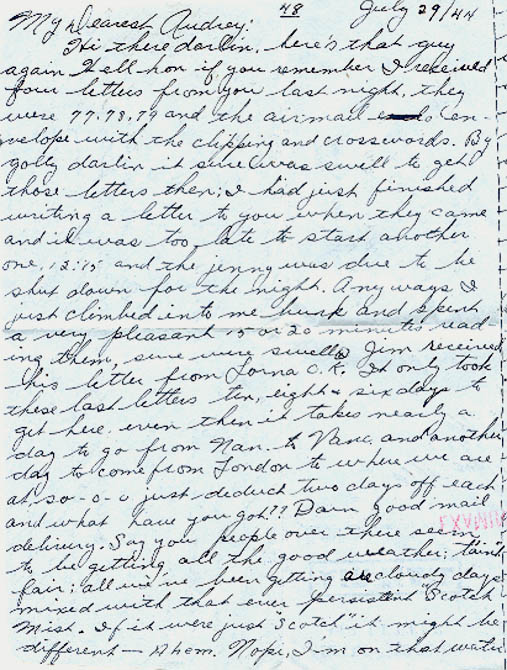 48 July 29/44
My Dearest Audrey:
Hi there darlin, here's that guy
again. Well hon if you remember I received
four letters from you last night, they
were 77, 78, 79 and the airmail en-
velope with the clipping and crosswords. By
golly darlin it sure was swell to get
those letters then; I had just finished
writing a letter to you when they came
and it was too late to start another
one, 12:15 and the jenny was due to be
shut down for the night. Any ways I
just climbed into me bunk and spent
a very pleasant 15 or 20 minutes read-
ing them, sure were swell. Jim received
his letter from Lorna O.K. It only took
these last letters ten, eight & six days to
get here, even then it takes nearly a
day to go from Nan. to Vanc. and another
day to come from London to where we are
at so-o-o just deduct two days off each
and what have you got!? Darn good mail
delivery. Say you people over there seem
to be getting all the good weather; t'aint
fair; all we've been getting are cloudy days
mixed with that ever persistent "Scotch
Mist. If it were just "Scotch" it might be
different — Ahem. Nope, I'm on that water